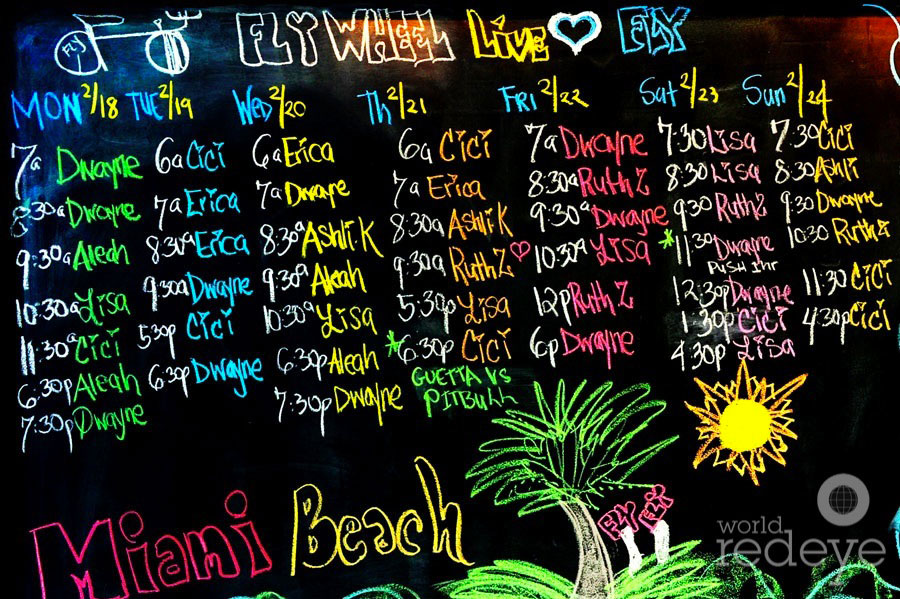 FLY
FLYWHEEL LIVE FLY
MON 2/18
7a Dwayne
8:30a Dwayne
9:30a Aleah
10:30a Lisa
11:30a Cici
6:30p Aleah
7:30p Dwayne
TUE 2/19
6a Cici
7a Erica
8:30a Erica
9:30a Dwayne
5:30p Cici
6:30p Dwayne
Wed 2/20
6a Erica
7a Dwaye
8:30a Ashli.K
9:30a Aleah
10:30a Lisa
6:30p Aleah
7:30p Dwayne
Th 2/21
6a Cici
7a Erica
8:30a Ashli K
9:30a Ruth Z
5:30p Lisa
*6:30p Cici
GUETTA VS
PITBULL
FRI 2/22
7a Dwayne
8:30a Ruth Z
9:30a Dwayne
10:30a Lisa
12p Ruth Z
6p Dwayne
Sat 2/23
7:30 Lisa
8:30 Lisa
9:30 Ruth Z
*11:30 Dwayne
PUSH 1hr
12:30p Dwayne
1:30p Cici
4:30p Lisa
Sun 2/24
7:30 Cici
8:30 Ashli
9:30 Dwayne
10:30 Ruth Z
11:30 Cici
4:30p Cici
Miami Beach
FLY FLY
world
redeye